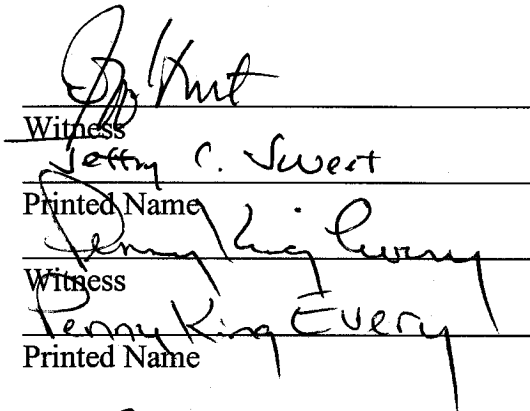 Witness
Jeffry C. Sweet
Printed Name
Penny King Every
Witness
Penny King Every
Printed Name